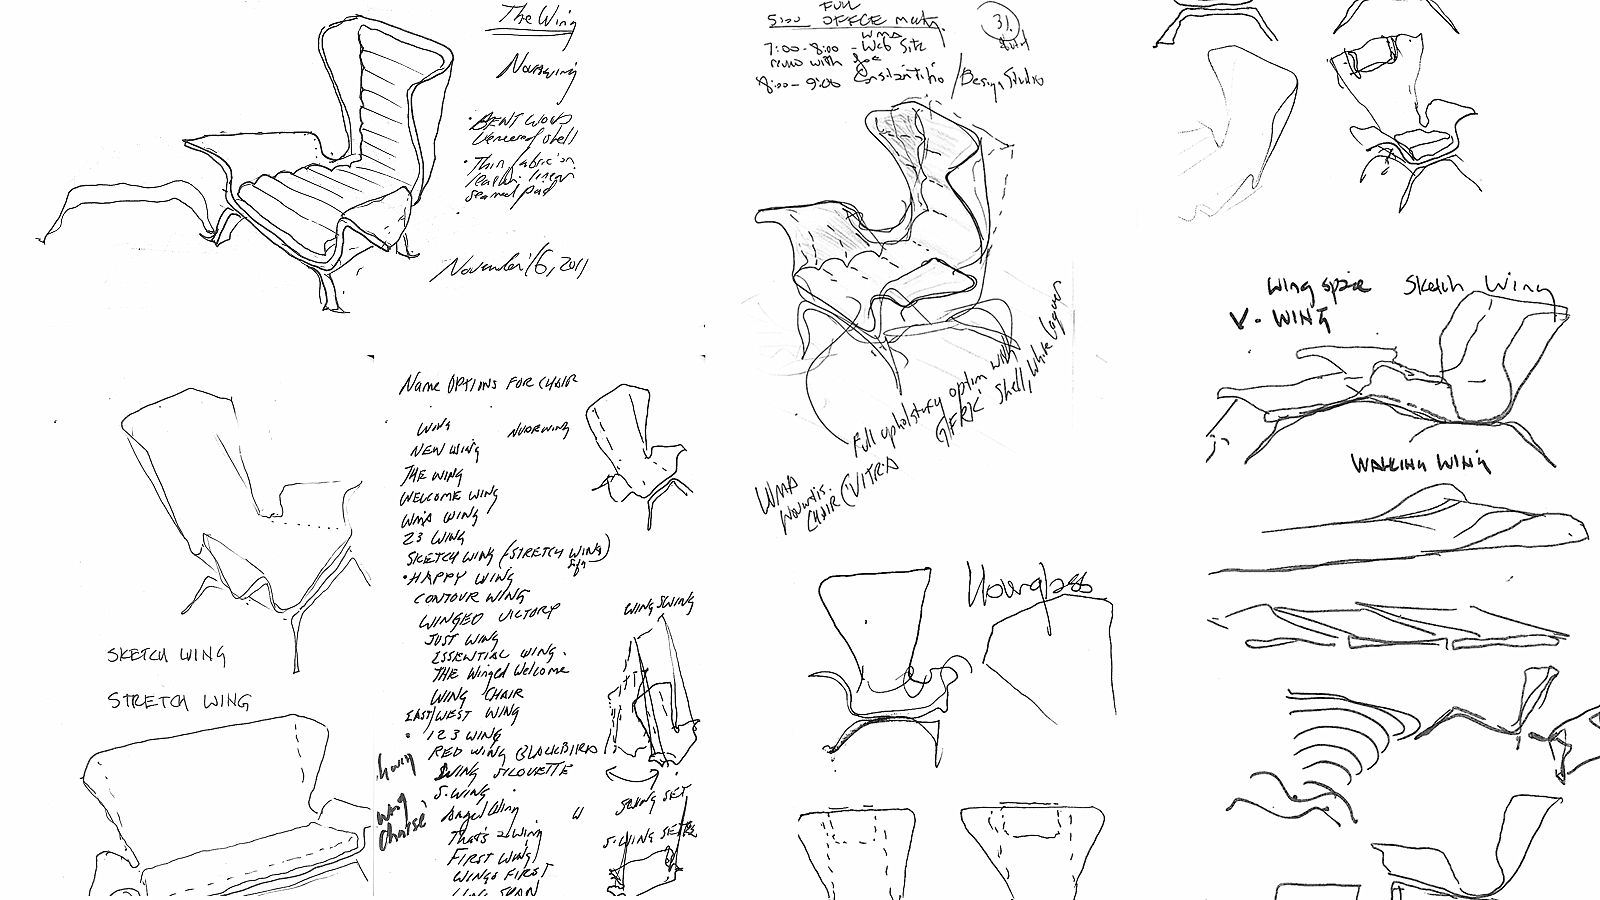 The Wing
Nouawing
• BENT WOOD
Veneered shell
• Thin fabric on
seamed pad
November 16, 2011
FULL
5:00 OFFCE
WMA
7:00-8:00 - Web Site
with Joe
8:00-9:00 / Design Studio
31.
Full upholstery option with
GFRC Shell, White
WMA
CHAIR (VITRA
Name OPTIONS FOR CHAIR
WING
NUORWING
NEW WING
THE WING
WELCOME WING
WMA WING
23 WING
SKETCH WING (STRETCH WING)
• HAPPY WING
CONTOUR WING
WINGED VICTORY
JUST WING
ESSENTIAL WING.
THE Winged Welcome
WING CHAIR
EAST/WEST WING
• 123 WING
RED WING BLACKBIRD
WING SILOUETTE
S-WING
Angel Wing
That's a wing
FIRST WING
WINGS FIRST
SPAN
Wing
Chaise
WING SWING
SWING SET
S-WING
SKETCH WING
STRETCH WING
Hourglass
Wing Sketch Wing
V-WING
WALKING WING